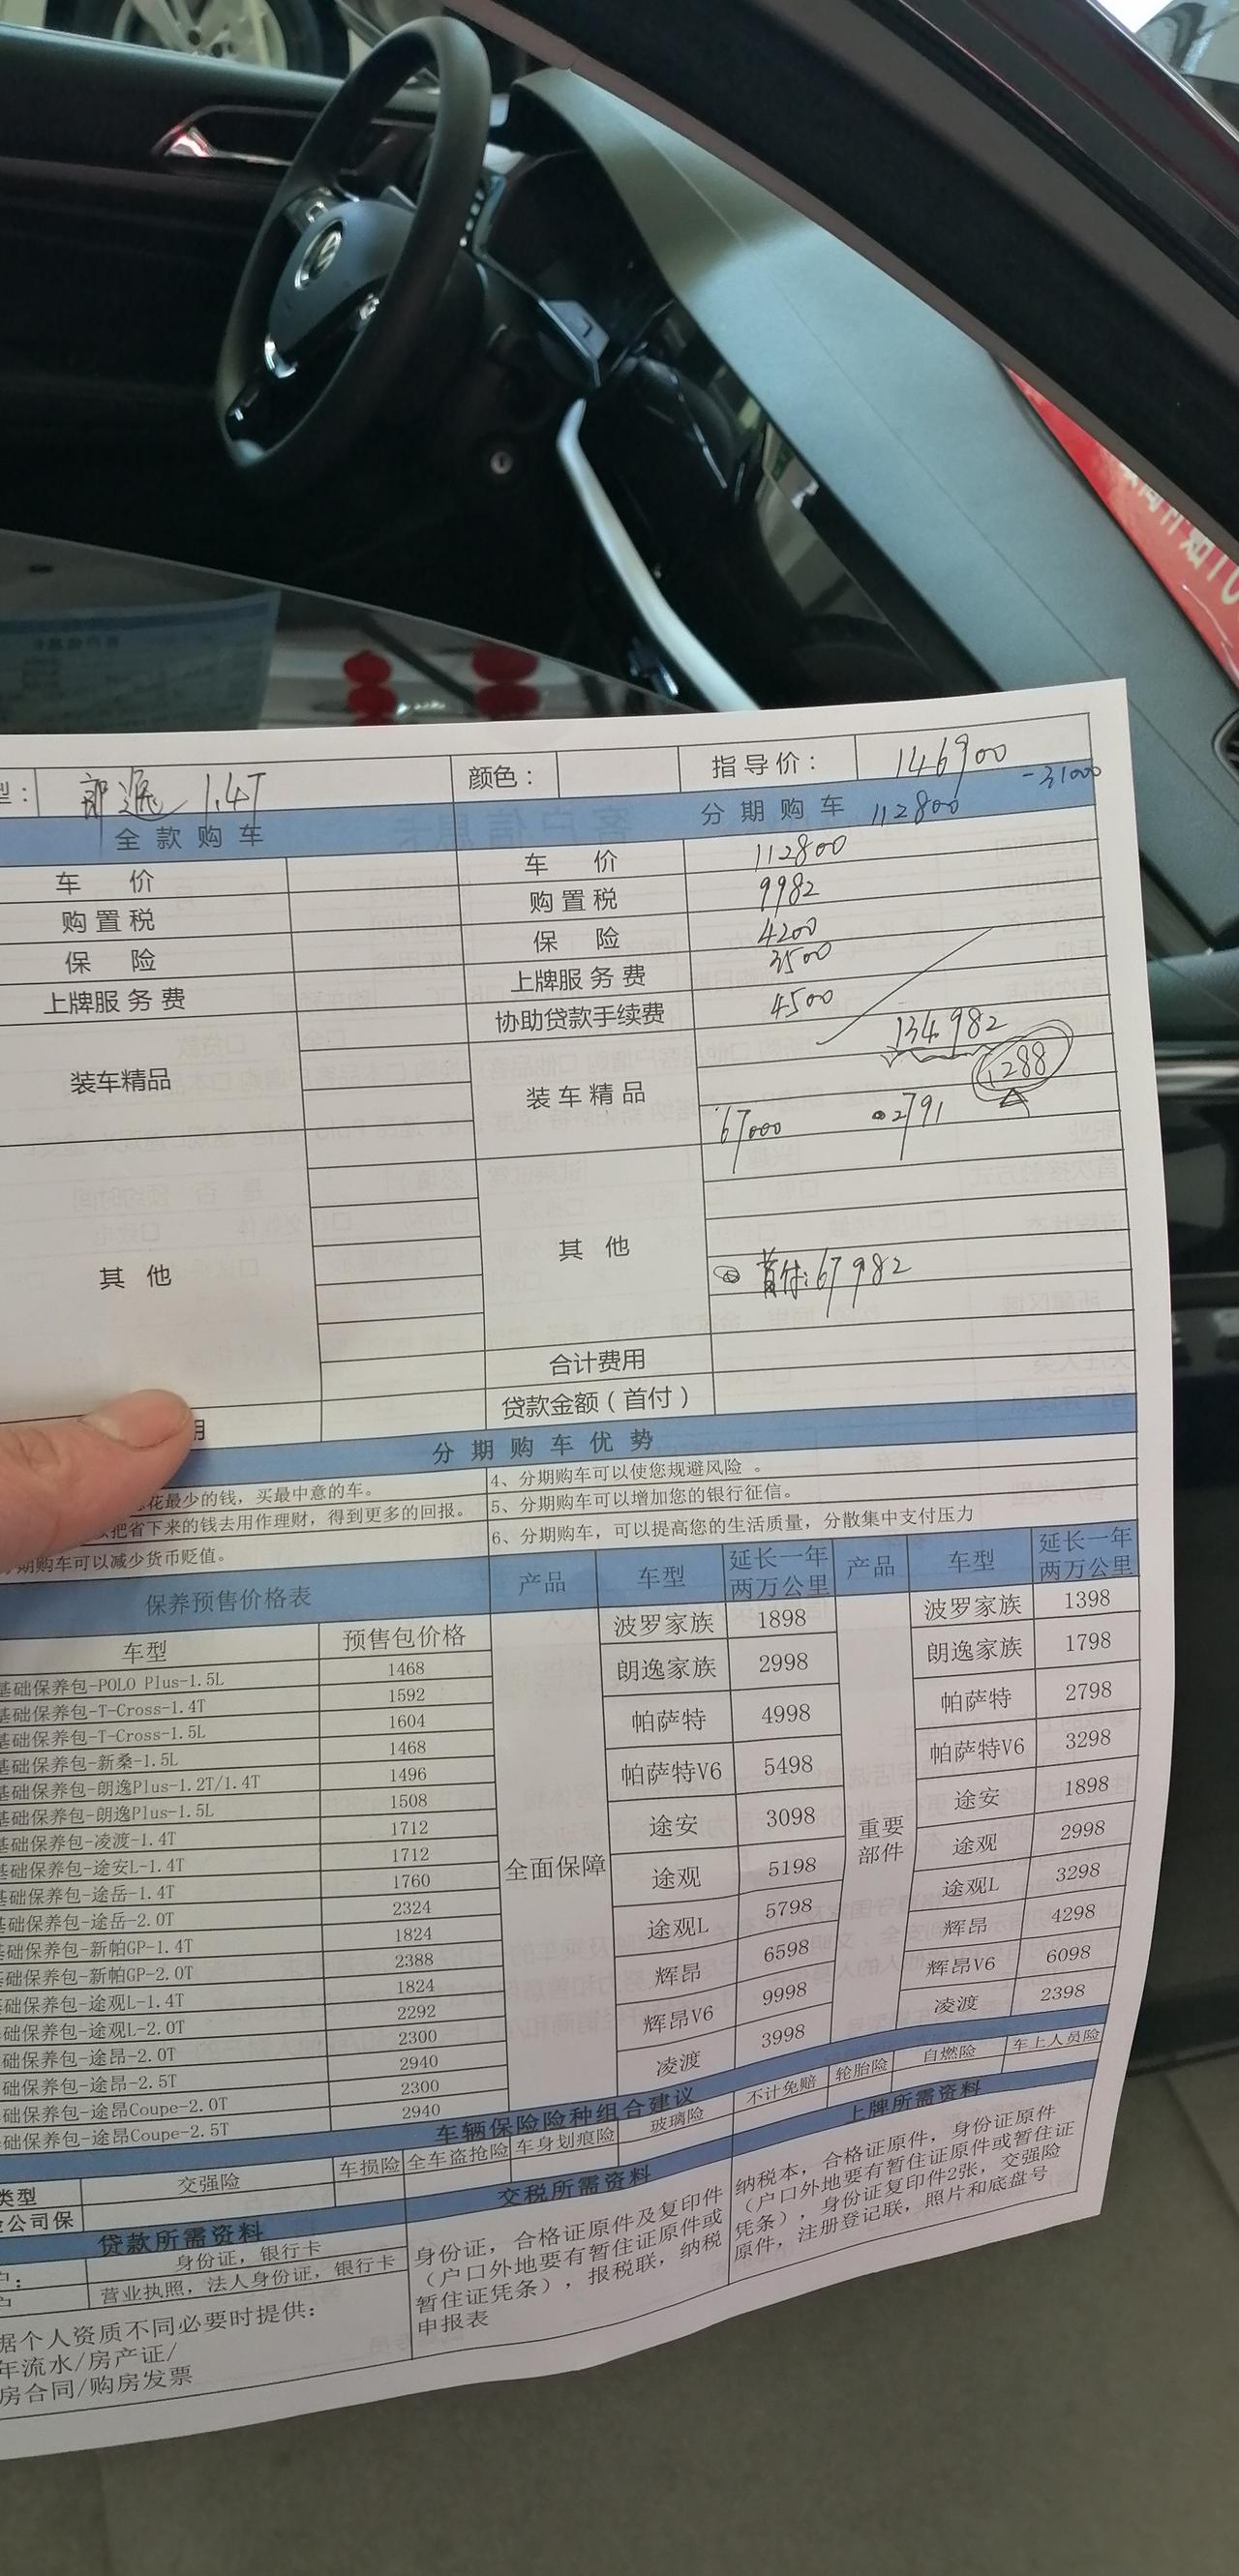 型： 朗逸 1.4T 颜色： 指导价： 146900
-31000
全款购车 分期购车 112800
车 价 车 价 112800
购置税 购置税 9982
保 险 保 险 4200
上牌服务费 上牌服务费 3500
协助贷款手续费 4500
134982
装车精品 装车精品 1288
67000 2791
其 他 其 他
首付:67982
合计费用
用 贷款金额（首付）
分期购车优势
花最少的钱，买最中意的车。 4、分期购车可以使您规避风险 。
把省下来的钱去用作理财，得到更多的回报。 5、分期购车可以增加您的银行征信。
期购车可以减少货币贬值。 6、分期购车，可以提高您的生活质量，分散集中支付压力
保养预售价格表 产品 车型 延长一年两万公里 产品 车型 延长一年两万公里
车型 预售包价格
基础保养包-POLO Plus-1.5L 1468
基础保养包-T-Cross-1.4T 1592
基础保养包-T-Cross-1.5L 1604
基础保养包-新桑-1.5L 1468
基础保养包-朗逸Plus-1.2T/1.4T 1496
基础保养包-朗逸Plus-1.5L 1508
基础保养包-凌渡-1.4T 1712
基础保养包-途安L-1.4T 1712
基础保养包-途岳-1.4T 1760
基础保养包-途岳-2.0T 2324
基础保养包-新帕GP-1.4T 1824
基础保养包-新帕GP-2.0T 2388
础保养包-途观L-1.4T 1824
础保养包-途观L-2.0T 2292
础保养包-途昂-2.0T 2300
础保养包-途昂-2.5T 2940
础保养包-途昂Coupe-2.0T 2300
础保养包-途昂Coupe-2.5T 2940
全面保障
波罗家族 1898
朗逸家族 2998
帕萨特 4998
帕萨特V6 5498
途安 3098
途观 5198
途观L 5798
辉昂 6598
辉昂V6 9998
凌渡 3998
重要部件
波罗家族 1398
朗逸家族 1798
帕萨特 2798
帕萨特V6 3298
途安 1898
途观 2998
途观L 3298
辉昂 4298
辉昂V6 6098
凌渡 2398
车辆保险险种组合建议
类型 交强险 车损险 全车盗抢险 车身划痕险 玻璃险 不计免赔 轮胎险 自燃险 车上人员险
公司保
贷款所需资料 交税所需资料 上牌所需资料
户： 身份证，银行卡
户 营业执照，法人身份证，银行卡
据个人资质不同必要时提供：
年流水/房产证/
房合同/购房发票
身份证，合格证原件及复印件
（户口外地要有暂住证原件或
暂住证凭条），报税联，纳税
申报表
纳税本，合格证原件，身份证原件
（户口外地要有暂住证原件或暂住证
凭条），身份证复印件2张，交强险
原件，注册登记联，照片和底盘号